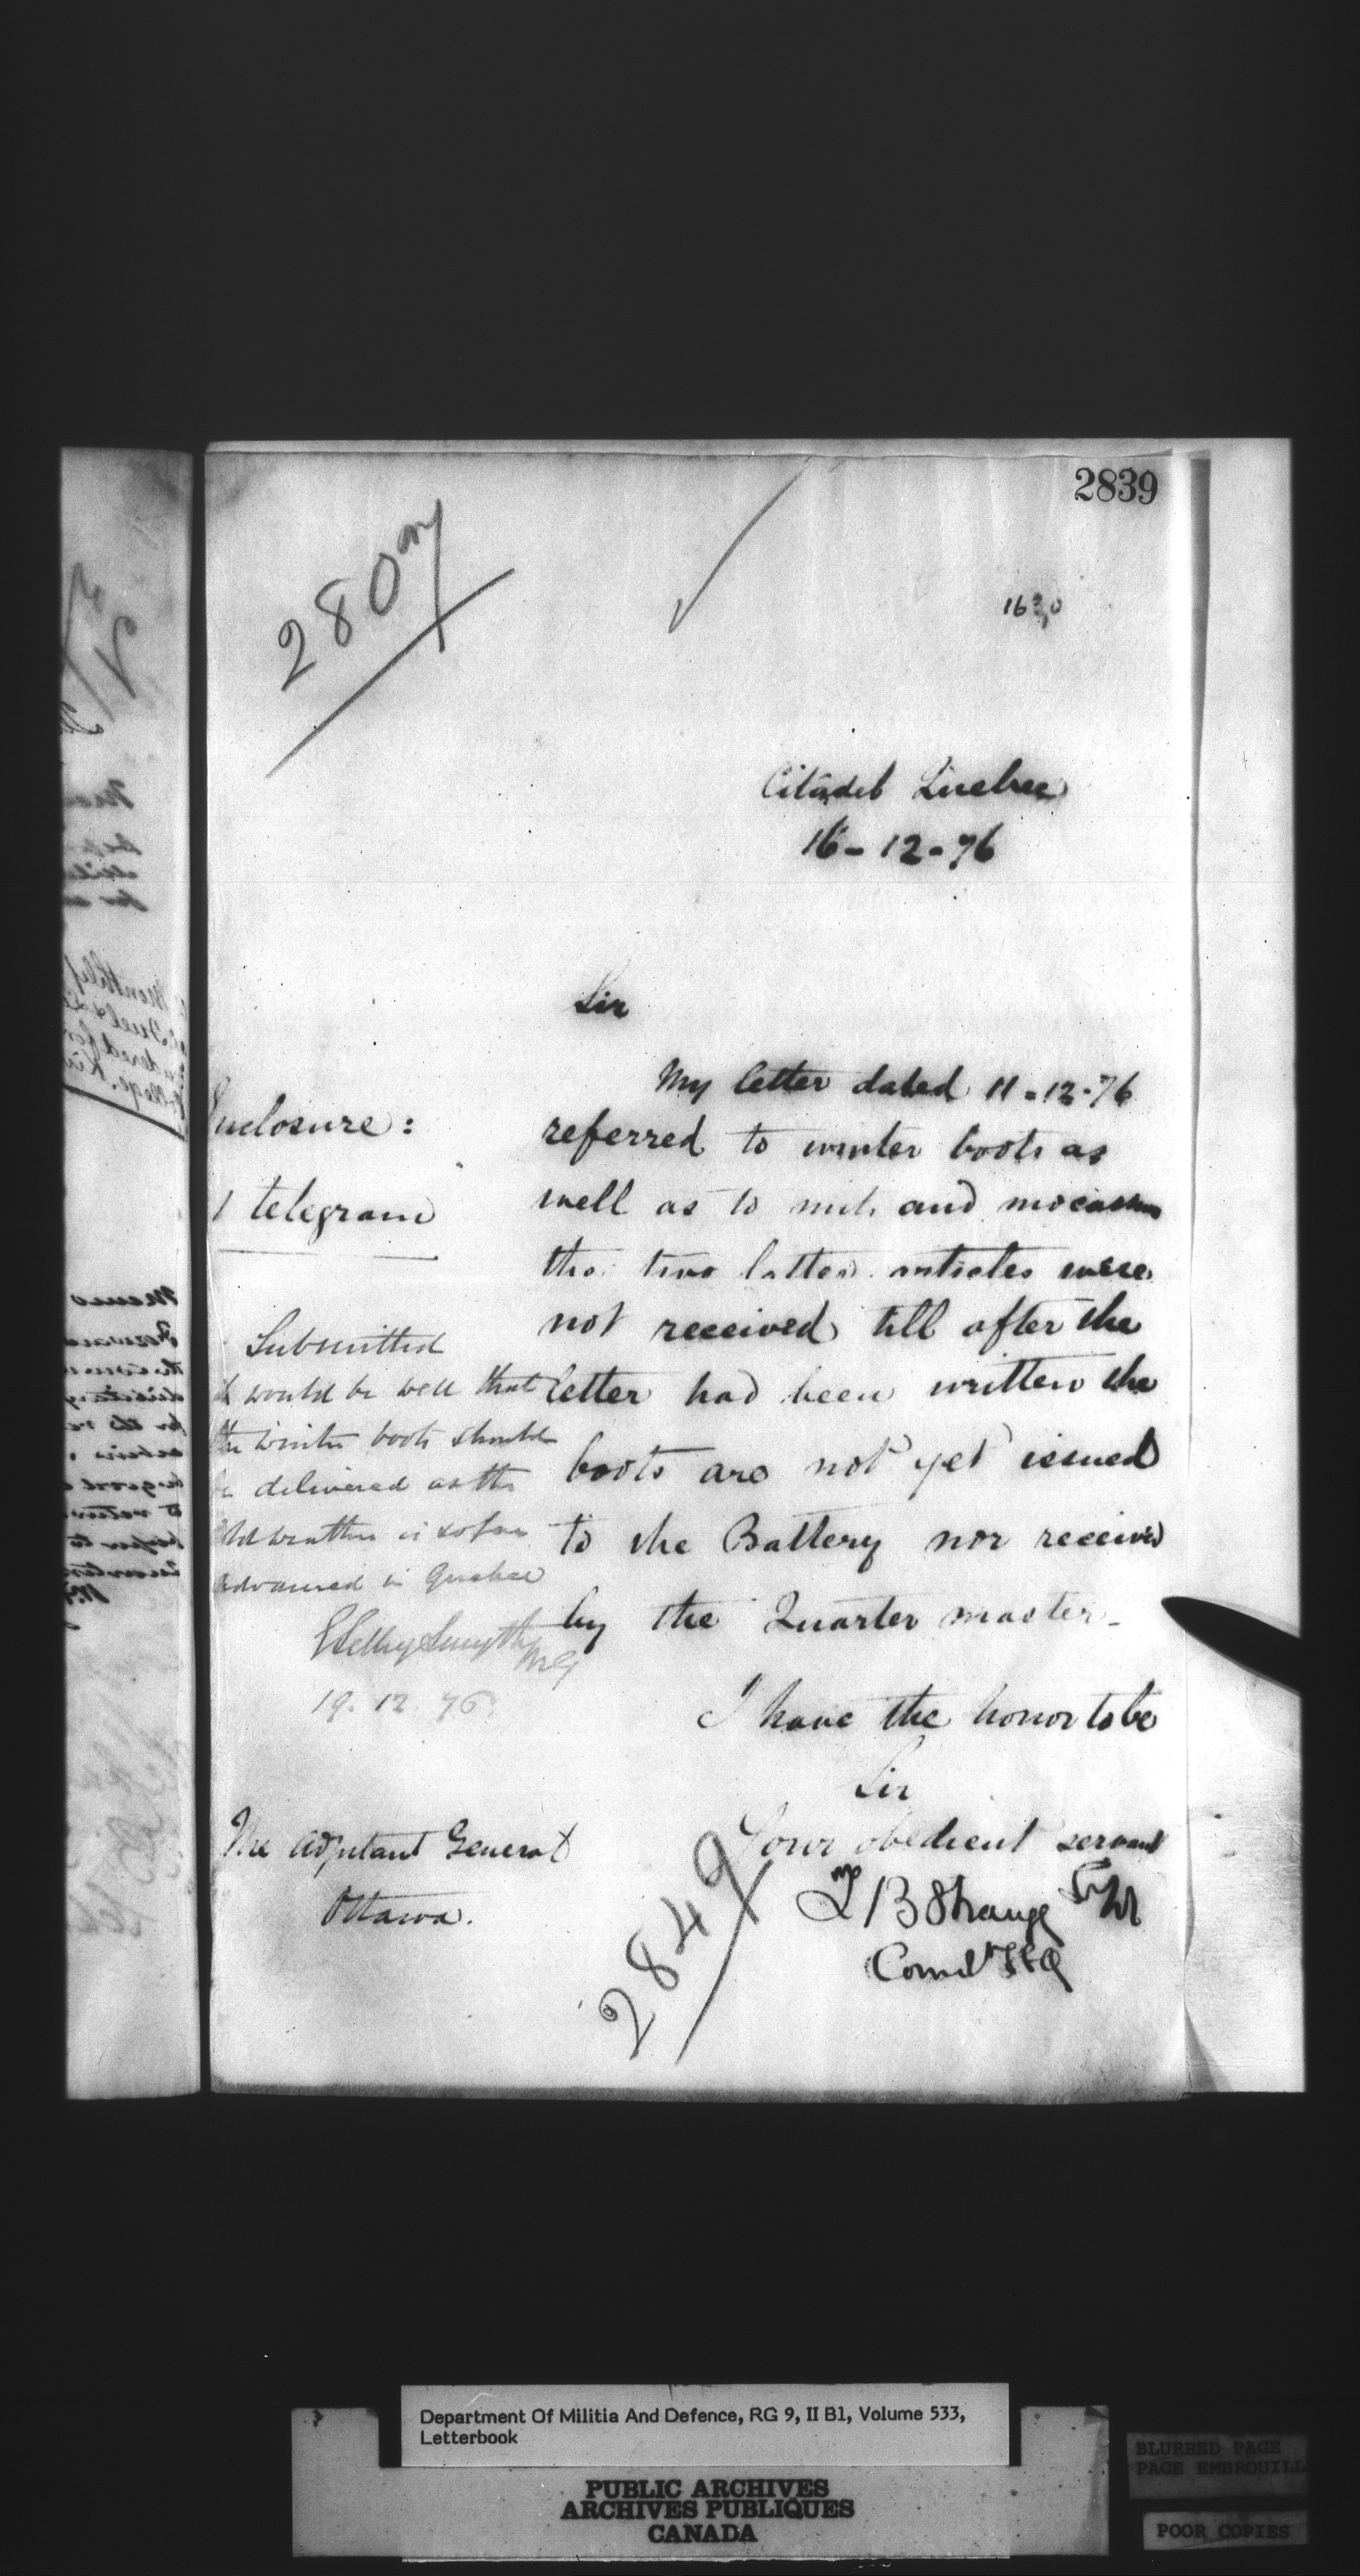 2839
280
1630
Citadel Quebec
16-12-76
Sir
My letter dated 11-12-76
referred to winter boots as
well as to mits and mocassins
the two latter articles were
not received till after the
letter had been written the
boots are not yet issued
to the Battery nor received
by the Quarter master-
I have the honor to be
Sir
Your obedient servant
T B Strange
Comdt
Enclosure:
1 telegram
Submitted
it would be well that
the winter boots should
be delivered as the
cold weather is so far
advanced in Quebec
E Selby Smyth
MG
19. 12 76.
The Adjutant General
Ottawa.
2849
Department Of Militia And Defence, RG 9, II B1, Volume 533,
Letterbook
PUBLIC ARCHIVES
ARCHIVES PUBLIQUES
CANADA
BLURRED PAGE
PAGE EMBROUILL
POOR COPIES